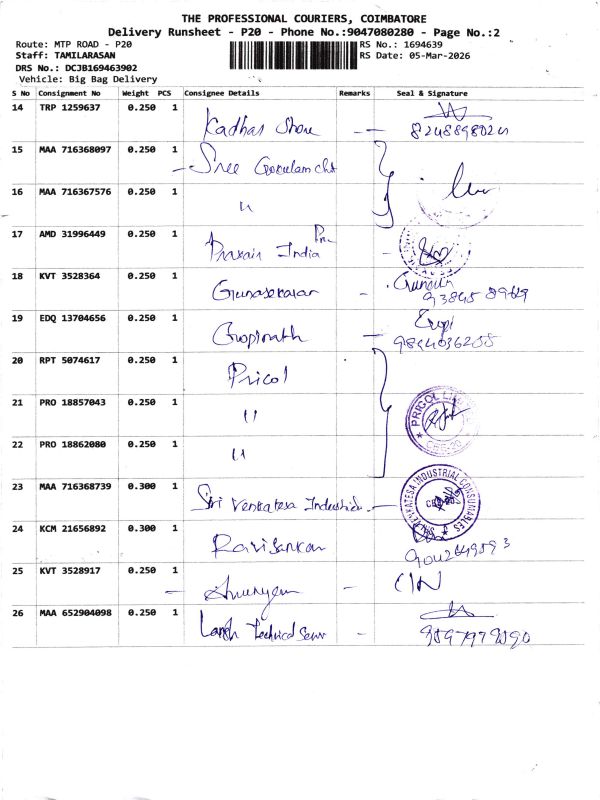 THE PROFESSIONAL COURIERS, COIMBATORE
Delivery Runsheet - P20 - Phone No.:9047080280 - Page No.:2
Route: MTP ROAD - P20 RS No.: 1694639
Staff: TAMILARASAN RS Date: 05-Mar-2026
DRS No.: DCJB169463902
Vehicle: Big Bag Delivery
S No Consignment No Weight PCS Consignee Details Remarks Seal & Signature
14 TRP 1259637 0.250 1 Kadhar
15 MAA 716368097 0.250 1 Sree Gokulam
16 MAA 716367576 0.250 1 "
17 AMD 31996449 0.250 1 Praxair India
18 KVT 3528364 0.250 1 Gunasekaran
19 EDQ 13704656 0.250 1 Gopinath Gopi
20 RPT 5074617 0.250 1 Pricol
21 PRO 18857043 0.250 1 " PRICOL
22 PRO 18862080 0.250 1 "
23 MAA 716368739 0.300 1 Sri Venkatesa VENKATESA INDUSTRIAL CONSUMABLES
24 KCM 21656892 0.300 1 Ravisankar
25 KVT 3528917 0.250 1
26 MAA 652904098 0.250 1 Technical